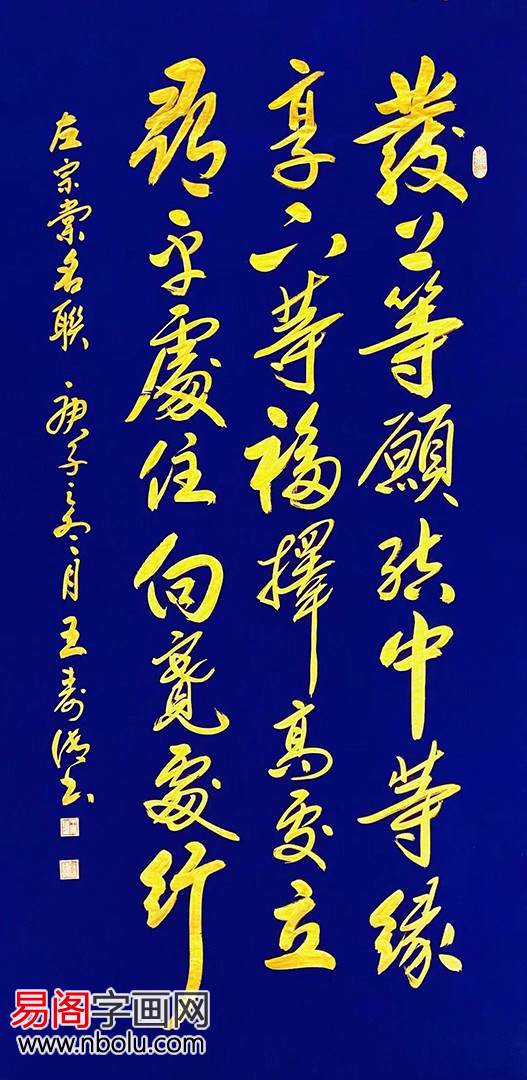 發上等願結中等緣
享下等福擇高處立
尋平處住向寬處行
左宗棠名聯 庚子之冬月王壽浩书
易阁字画网
www.nbolu.com